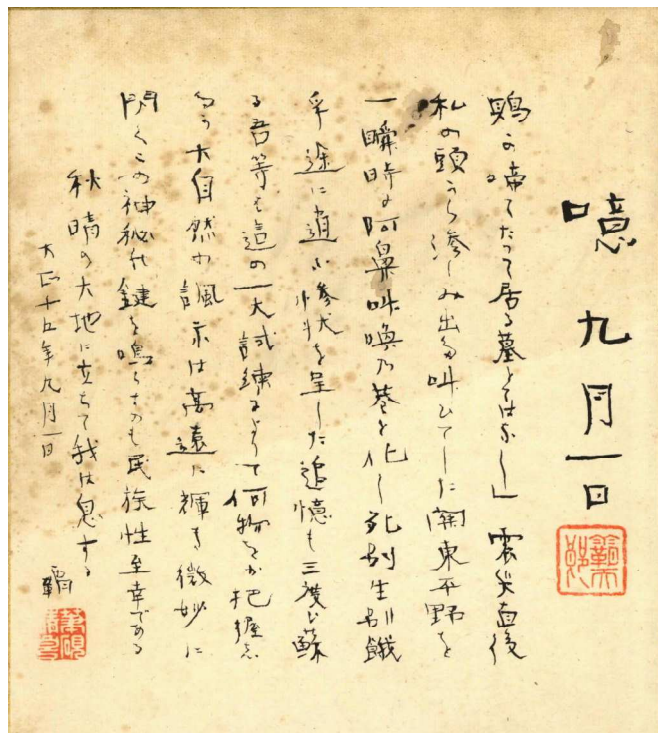 噫 九月一日
鵙の啼てたつて居る墓とてはなし」震災直後
私の頭から滲しみ出る叫ひてした関東平野を
一瞬時に阿鼻叫喚乃巷と化し死別生別餓
孚途に逍ふ惨状を呈した追憶も三度び蘇
る吾等も這の一大試練によりて何物をか把握志
た可大自然の諷示は高遠に輝き微妙に
閃くこの神秘な鍵を鳴らすのも民族性至幸である
秋晴の大地に立ちて我は息する
大正十五年九月一日